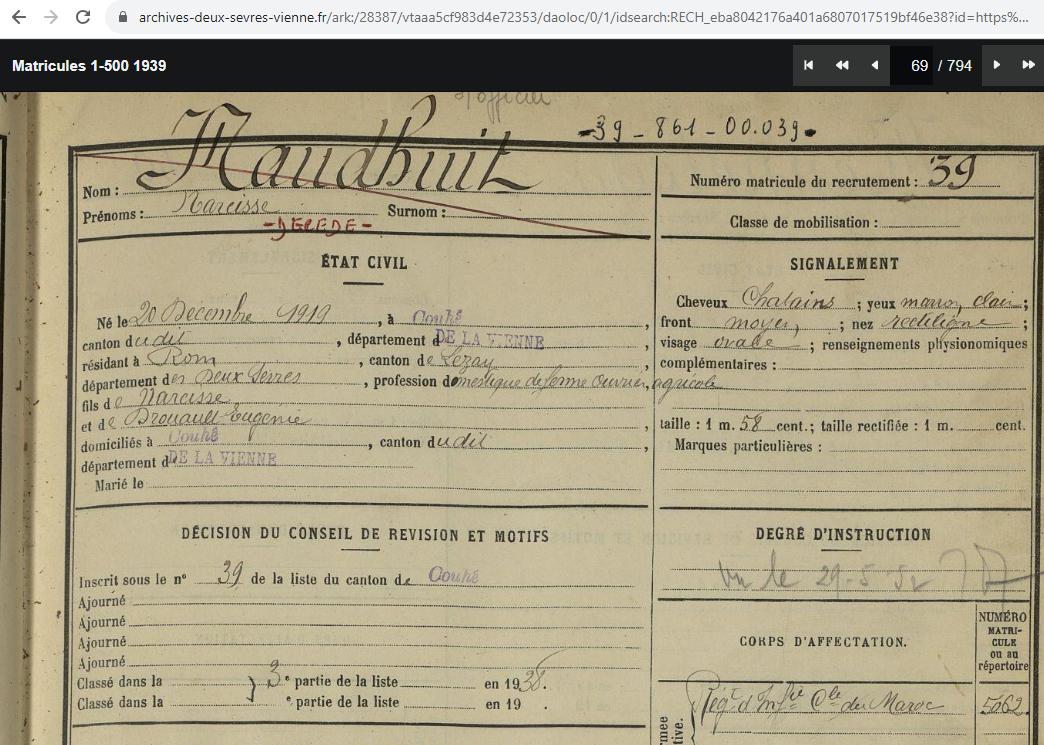 archives-deux-sevres-vienne.fr/ark:/28387/vtaaa5cf983d4e72353/daoloc/0/1/idsearch:RECH_eba8042176a401a6807017519bf46e38?id=https%...
Matricules 1-500 1939
69 / 794
-39-861-00.039-
Nom : Maudhuit
Prénoms : Narcisse Surnom :
-DECEDE-
Numéro matricule du recrutement : 39
Classe de mobilisation :
ÉTAT CIVIL
Né le 20 Décembre 1919, à Couhé,
canton dudit, département DE LA VIENNE,
résidant à Rom, canton de Lezay,
département des Deux Sèvres, profession domestique de ferme ouvrier agricole
fils de Narcisse
et de Drouault Eugénie,
domiciliés à Couhé, canton dudit,
département DE LA VIENNE
Marié le
SIGNALEMENT
Cheveux Chatains ; yeux marron clair ;
front moyen, ; nez rectiligne ;
visage ovale ; renseignements physionomiques
complémentaires :
taille : 1 m. 58 cent.; taille rectifiée : 1 m. cent.
Marques particulières :
DÉCISION DU CONSEIL DE REVISION ET MOTIFS
Inscrit sous le n° 39 de la liste du canton de Couhé
Ajourné
Ajourné
Ajourné
Ajourné
Classé dans la 3e partie de la liste en 1938.
Classé dans la e partie de la liste en 19 .
DEGRÉ D'INSTRUCTION
Vu le 29-5-52
CORPS D'AFFECTATION.
NUMÉRO
MATRI-
CULE
ou au
répertoire
Régt d'Infie Cle du Maroc 5062